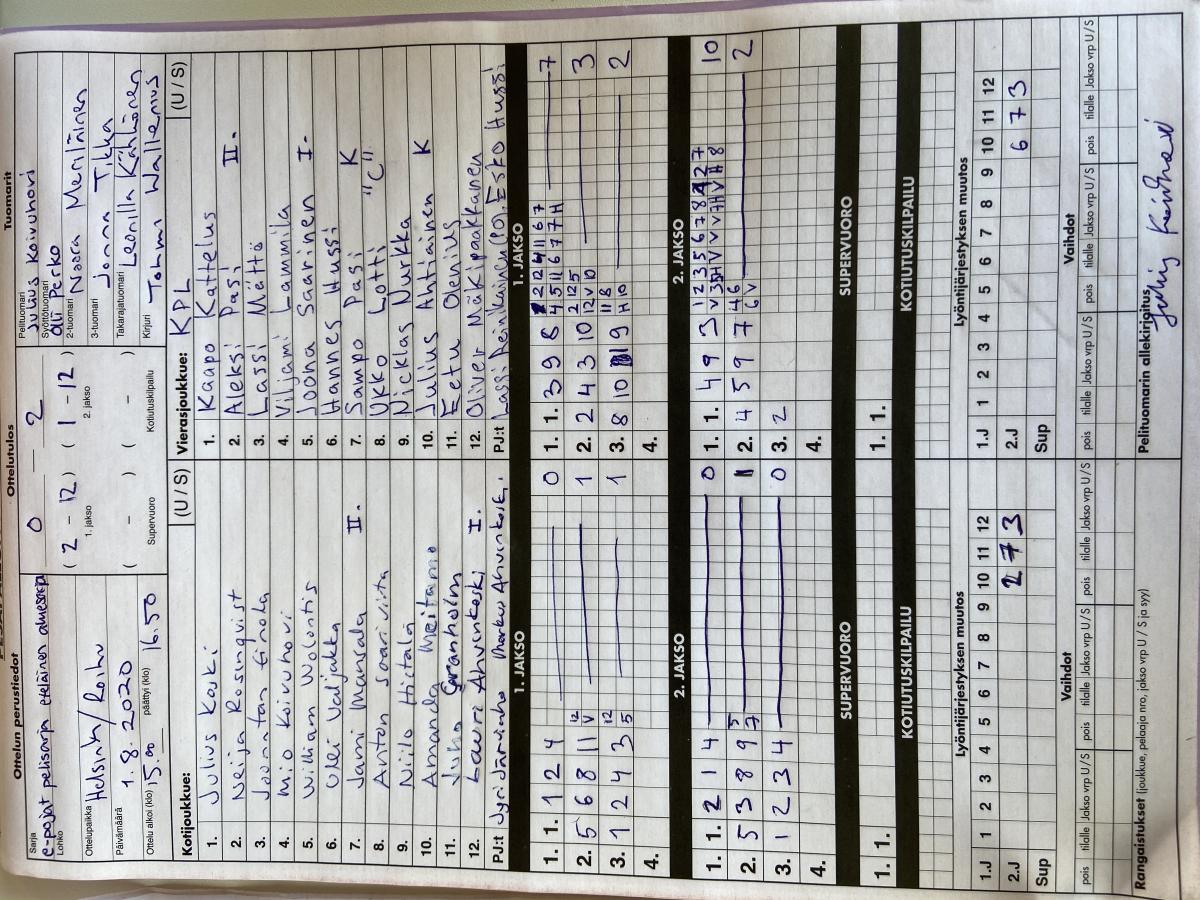 Ottelun perustiedot
Sarja
e-pojat pelisarja eteläinen aluesarja
Lohko
Ottelupaikka Helsinki/Roihu
Päivämäärä 1.8.2020
Ottelu alkoi (klo) 15.00 päättyi (klo) 16.50
Ottelutulos
0 2
(2 - 12) (1 - 12)
1. jakso 2. jakso
( - ) ( - )
Supervuoro Kotiutuskilpailu
Tuomarit
Pelituomari Julius Koivuhovi
Syöttötuomari Olli Perko
2-tuomari Noora Meriläinen
3-tuomari Jonna Tikka
Takarajatuomari Leonilla Kähkönen
Kirjuri Tommi Wallenius
Kotijoukkue: (U / S)
1. Julius Koski
2. Neija Rosenqvist
3. Joonatan Einola
4. Mio Koivuhovi
5. William Wolontis
6. Olei Valjakka
7. Jami Mansala II.
8. Anton Saariviita
9. Niilo Hietala
10. Amanda Meitamo
11. Juho Granholm
12. Lauri Ahvenkoski I.
PJ:t Jyri Järvinko Markus Ahvenkoski.
Vierasjoukkue: KPL (U / S)
1. Kaapo Kattelus
2. Aleksi Pasi II.
3. Lassi Mättö
4. Viljami Lammila
5. Joona Saarinen I.
6. Hannes Hussi
7. Sampo Pasi K
8. Ukko Lotti "C"
9. Nicklas Nurkka
10. Julius Ahtiainen K
11. Eetu Olenius
12. Oliver Mäkipaakkanen
PJ:t Lassi Reinikainen (PO), Esko Hussi
1. JAKSO
1. 1. 1 2 4 0
2. 5 6 8 11 12 V 1
3. 1 2 4 3 12 5 1
4.
1. JAKSO
1. 1. 3 9 8 7
2. 2 4 3 10 2 12 5 12 V 10 3
3. 8 10 9 11 8 H 10 2
4.
2. JAKSO
1. 1. 2 1 4 0
2. 5 3 8 9 5 7 1
3. 1 2 3 4 0
4.
2. JAKSO
1. 1. 4 9 3 10
2. 4 5 9 7 4 6 6 V 2
3. 2
4.
SUPERVUORO
1. 1.
SUPERVUORO
1. 1.
KOTIUTUSKILPAILU
KOTIUTUSKILPAILU
Lyöntijärjestyksen muutos
1.J 1 2 3 4 5 6 7 8 9 10 11 12
2.J 2 7 3
Sup
Lyöntijärjestyksen muutos
1.J 1 2 3 4 5 6 7 8 9 10 11 12
2.J 6 7 3
Sup
Vaihdot
pois tilalle Jakso vrp U/S pois tilalle Jakso vrp U/S pois tilalle Jakso vrp U/S
Vaihdot
pois tilalle Jakso vrp U/S pois tilalle Jakso vrp U/S pois tilalle Jakso vrp U/S
Rangaistukset (joukkue, pelaaja nro, jakso vrp, U / S ja syy)
Pelituomarin allekirjoitus